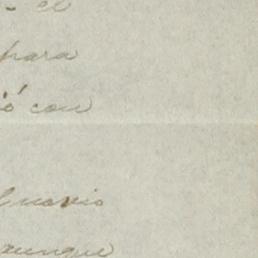 - el
para
ió con
novio
aunque